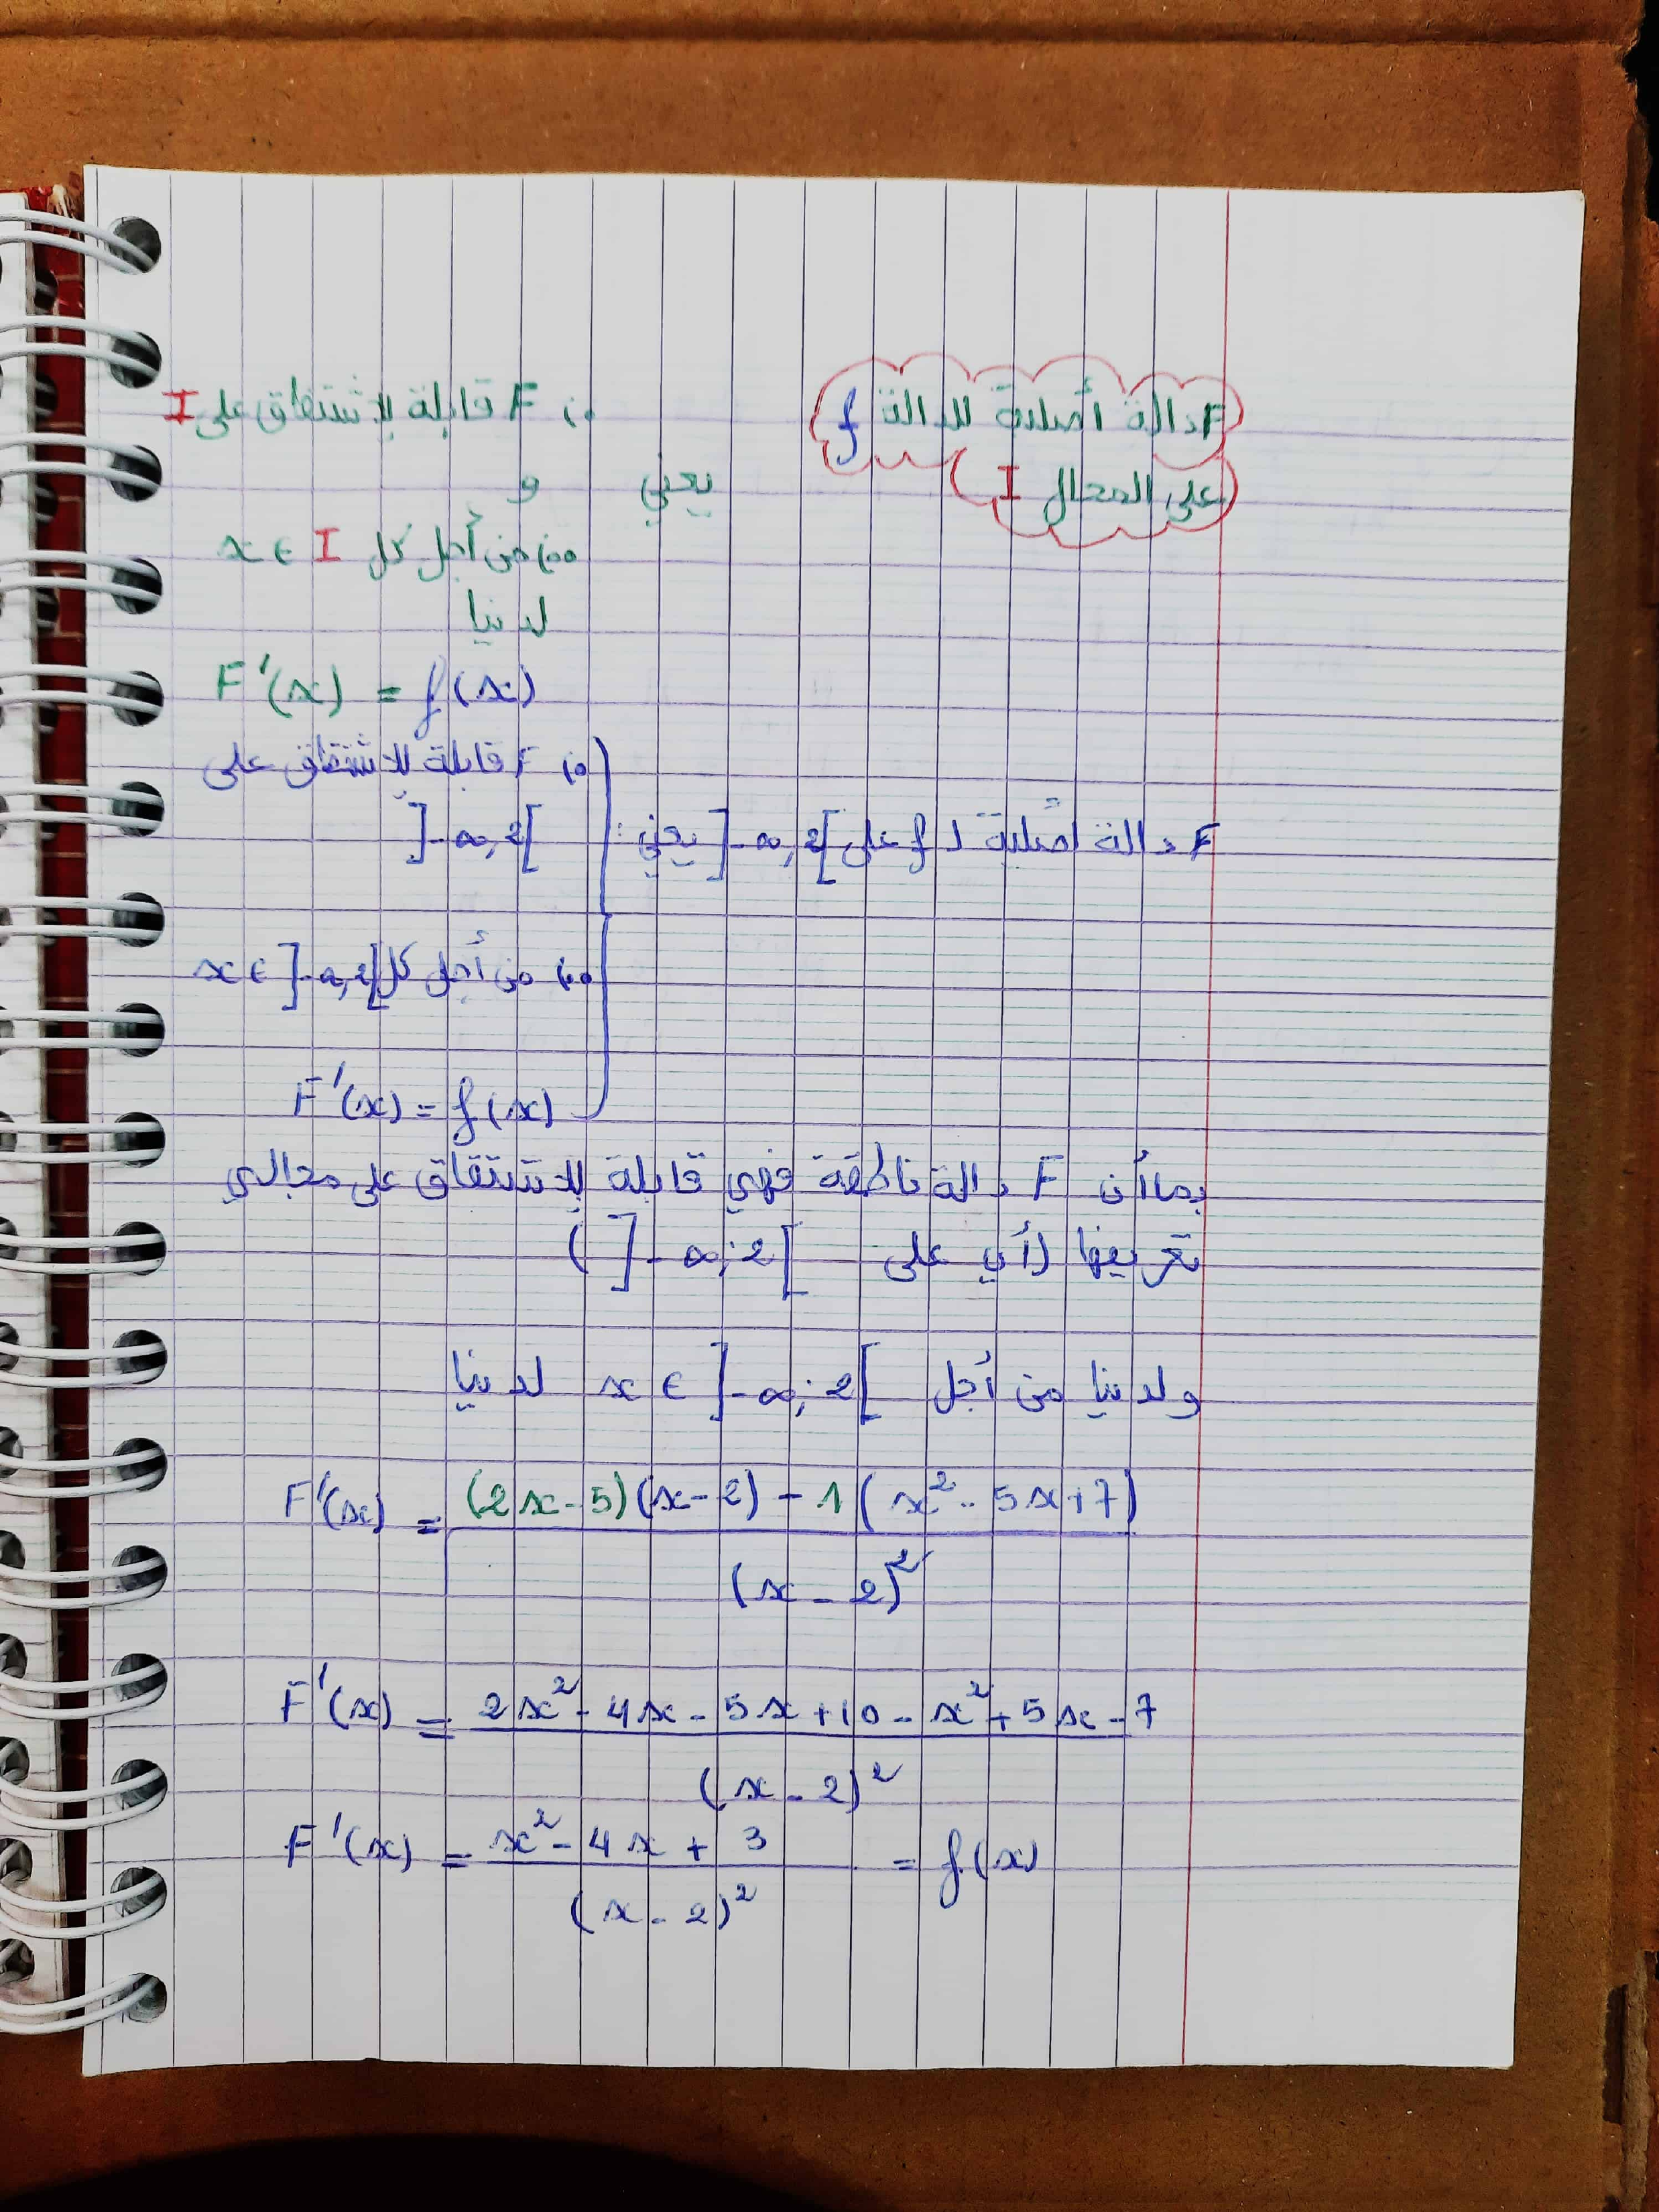 F دالة أصلية للدالة f
على المجال I
يعني
(i F قابلة للاشتقاق على I
و
(ii من أجل كل x ∈ I
لدينا
F'(x) = f(x)
F دالة أصلية لـ f على ]-∞, 2[ يعني:
(i F قابلة للاشتقاق على
]-∞, 2[
(ii من أجل كل x ∈ ]-∞, 2[
F'(x) = f(x)
بما أن F دالة ناطقة فهي قابلة للاشتقاق على مجالي
تعريفها (أي على ]-∞; 2[ )
ولدينا من أجل x ∈ ]-∞; 2[ لدينا
F'(x) = (2x-5)(x-2) - 1(x² - 5x+7) / (x-2)²
F'(x) = 2x² - 4x - 5x + 10 - x² + 5x - 7 / (x-2)²
F'(x) = x² - 4x + 3 / (x-2)² = f(x)